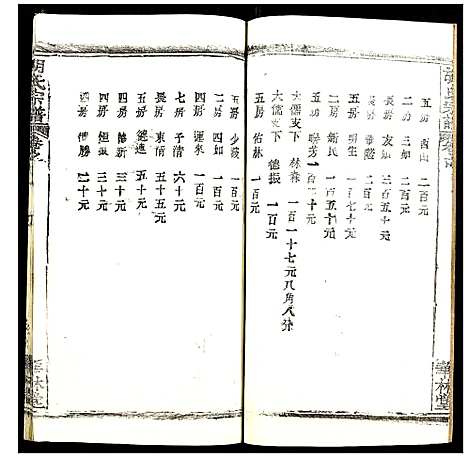 五房 西山 二百元
二房 力如 二百元
長房 友如 三百五十元
五房 明生 一百五十元
二房 新民 一百五十元
五房 聯芳 一百二十元
大儒支下 林森 一百一十七元八角八分
大儒支下 德振 一百元
五房 佑林 一百元
五房 少陵 一百元
四房 四如 一百元
四房 運泉 一百元
七房 子清 六十元
長房 東蒨 五十元
五房 德進 五十元
四房 恒振 三十元
四房 傳勝 二十元
胡氏宗譜
華林堂
華林堂